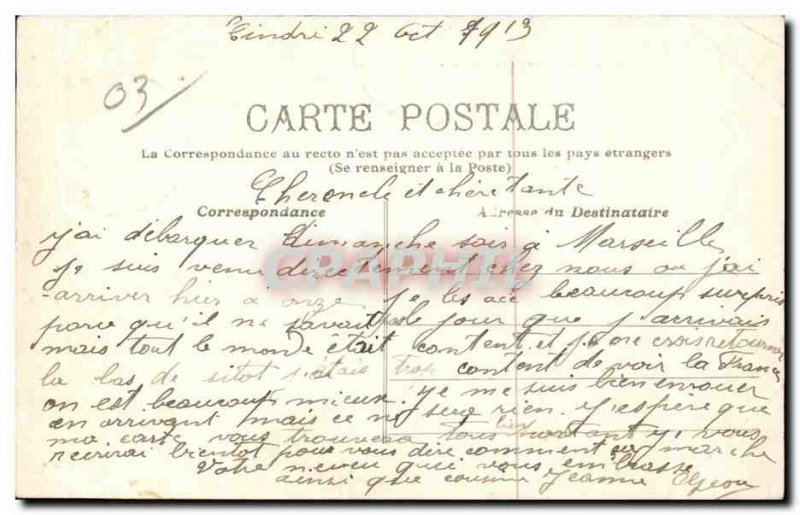 22 Oct 1913
03
CARTE POSTALE
La Correspondance au recto n'est pas acceptée par tous les pays étrangers
(Se renseigner à la Poste)
Cher oncle et chère tante
Correspondance
Adresse du Destinataire
j'ai débarquer Dimanche soir à Marseille
je suis venu directement chez nous ou j'ai
arriver hier a onze je les ai beaucoup surpris
parce qu'il ne savait pas le jour que j'arrivais
mais tout le monde était content et je ne crois retourner
la bas de sitot j'étais trop content de voir la France
on est beaucoup mieux. Je me suis bien enrouer
en arrivant mais ce ne sera rien. J'espère que
ma carte vous trouvera tous bien portant je vous
recrirai bientot pour vous dire comment ça marche
Votre neveu qui vous embrasse
ainsi que cousine Jeanne
CARTAPHILIE